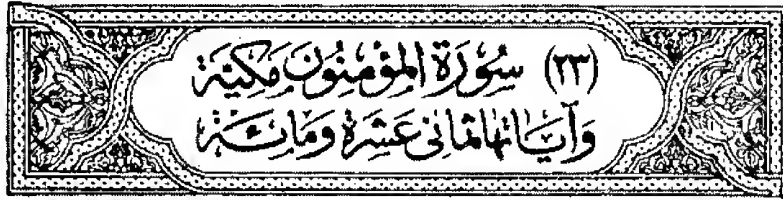 (٢٣) سُورَة المؤمِنُون مَكيَّة
وَآيَاتها ثمانى عَشرة وَمائة